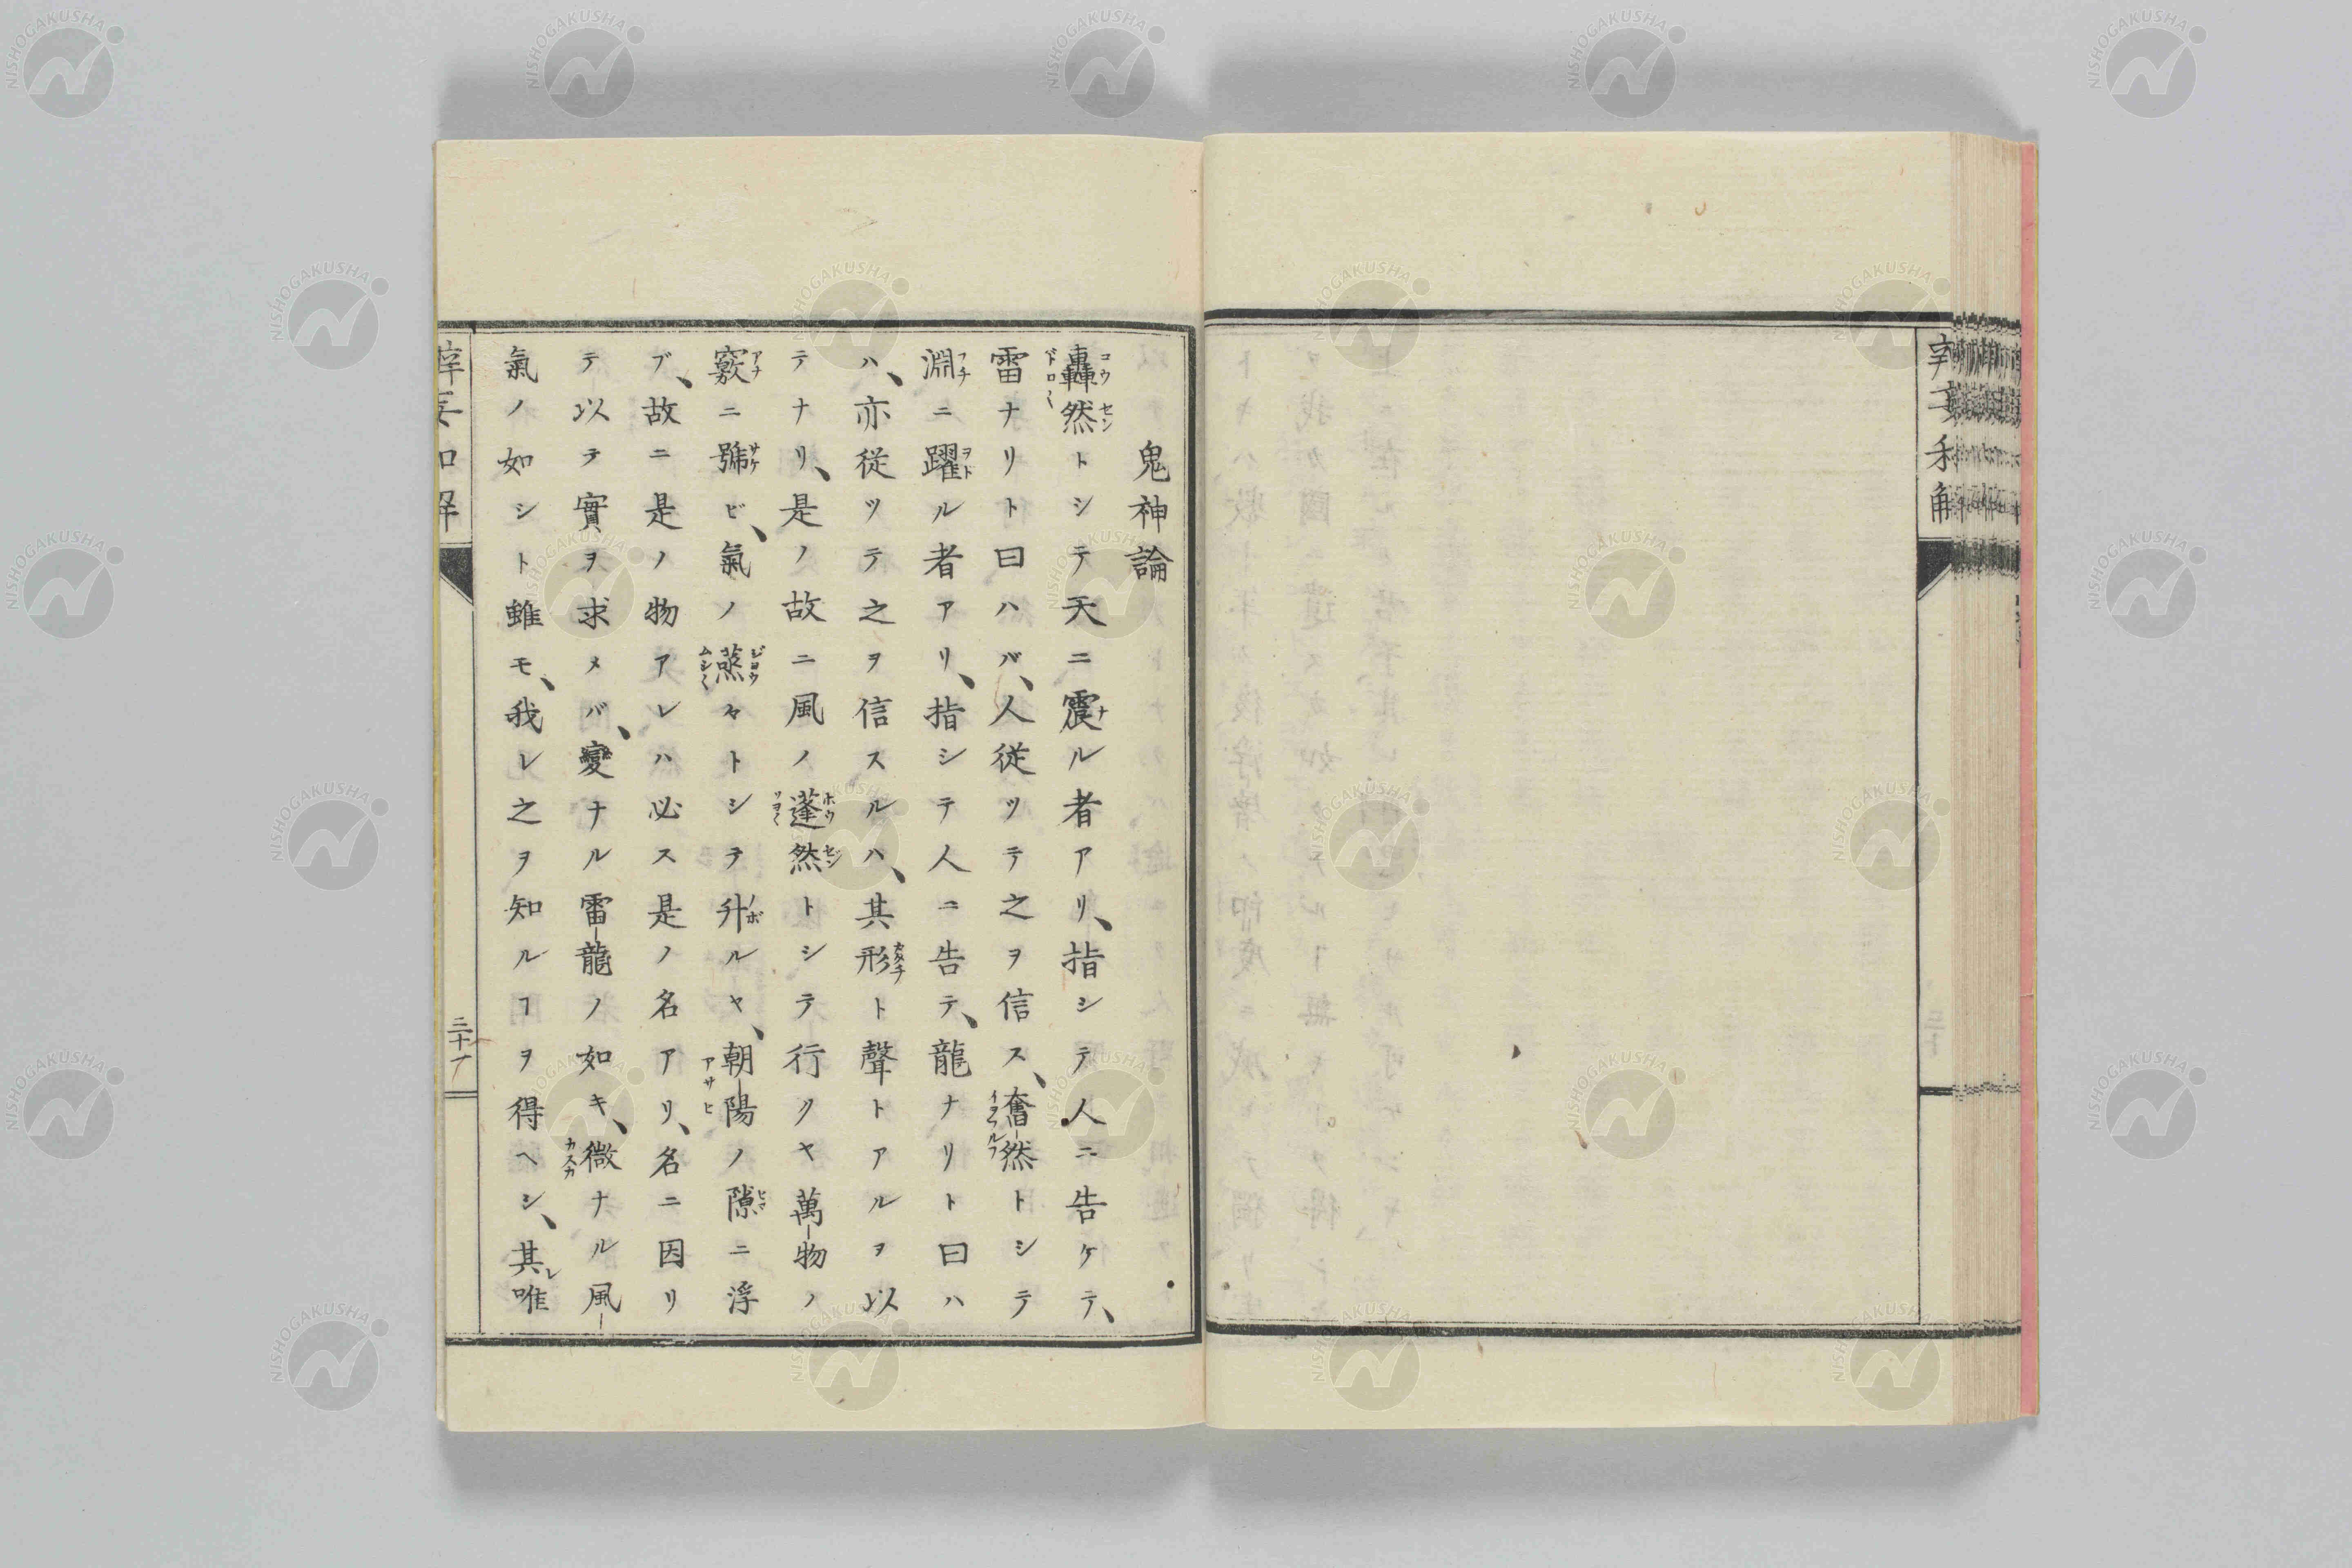 鬼神論
轟然トシテ天ニ震ル者アリ、指シテ人ニ告ケテ、
雷ナリト曰ハバ、人従ツテ之ヲ信ス、奮然トシテ
淵ニ躍ル者アリ、指シテ人ニ告テ、龍ナリト曰ハ
ハ、亦従ツテ之ヲ信スルハ、其形ト聲トアルヲ以
テナリ、是ノ故ニ風ノ蓬然トシテ行クヤ萬物ノ
竅ニ號ビ、氣ノ蒸々トシテ升ルヤ、朝陽ノ隙ニ浮
ブ、故ニ是ノ物アレハ必ス是ノ名アリ、名ニ因リ
テ以テ實ヲ求メバ、變ナル雷龍ノ如キ、微ナル風
氣ノ如シト雖モ、我レ之ヲ知ルヿヲ得ヘシ、其レ唯
三十一
NISHOGAKUSHA